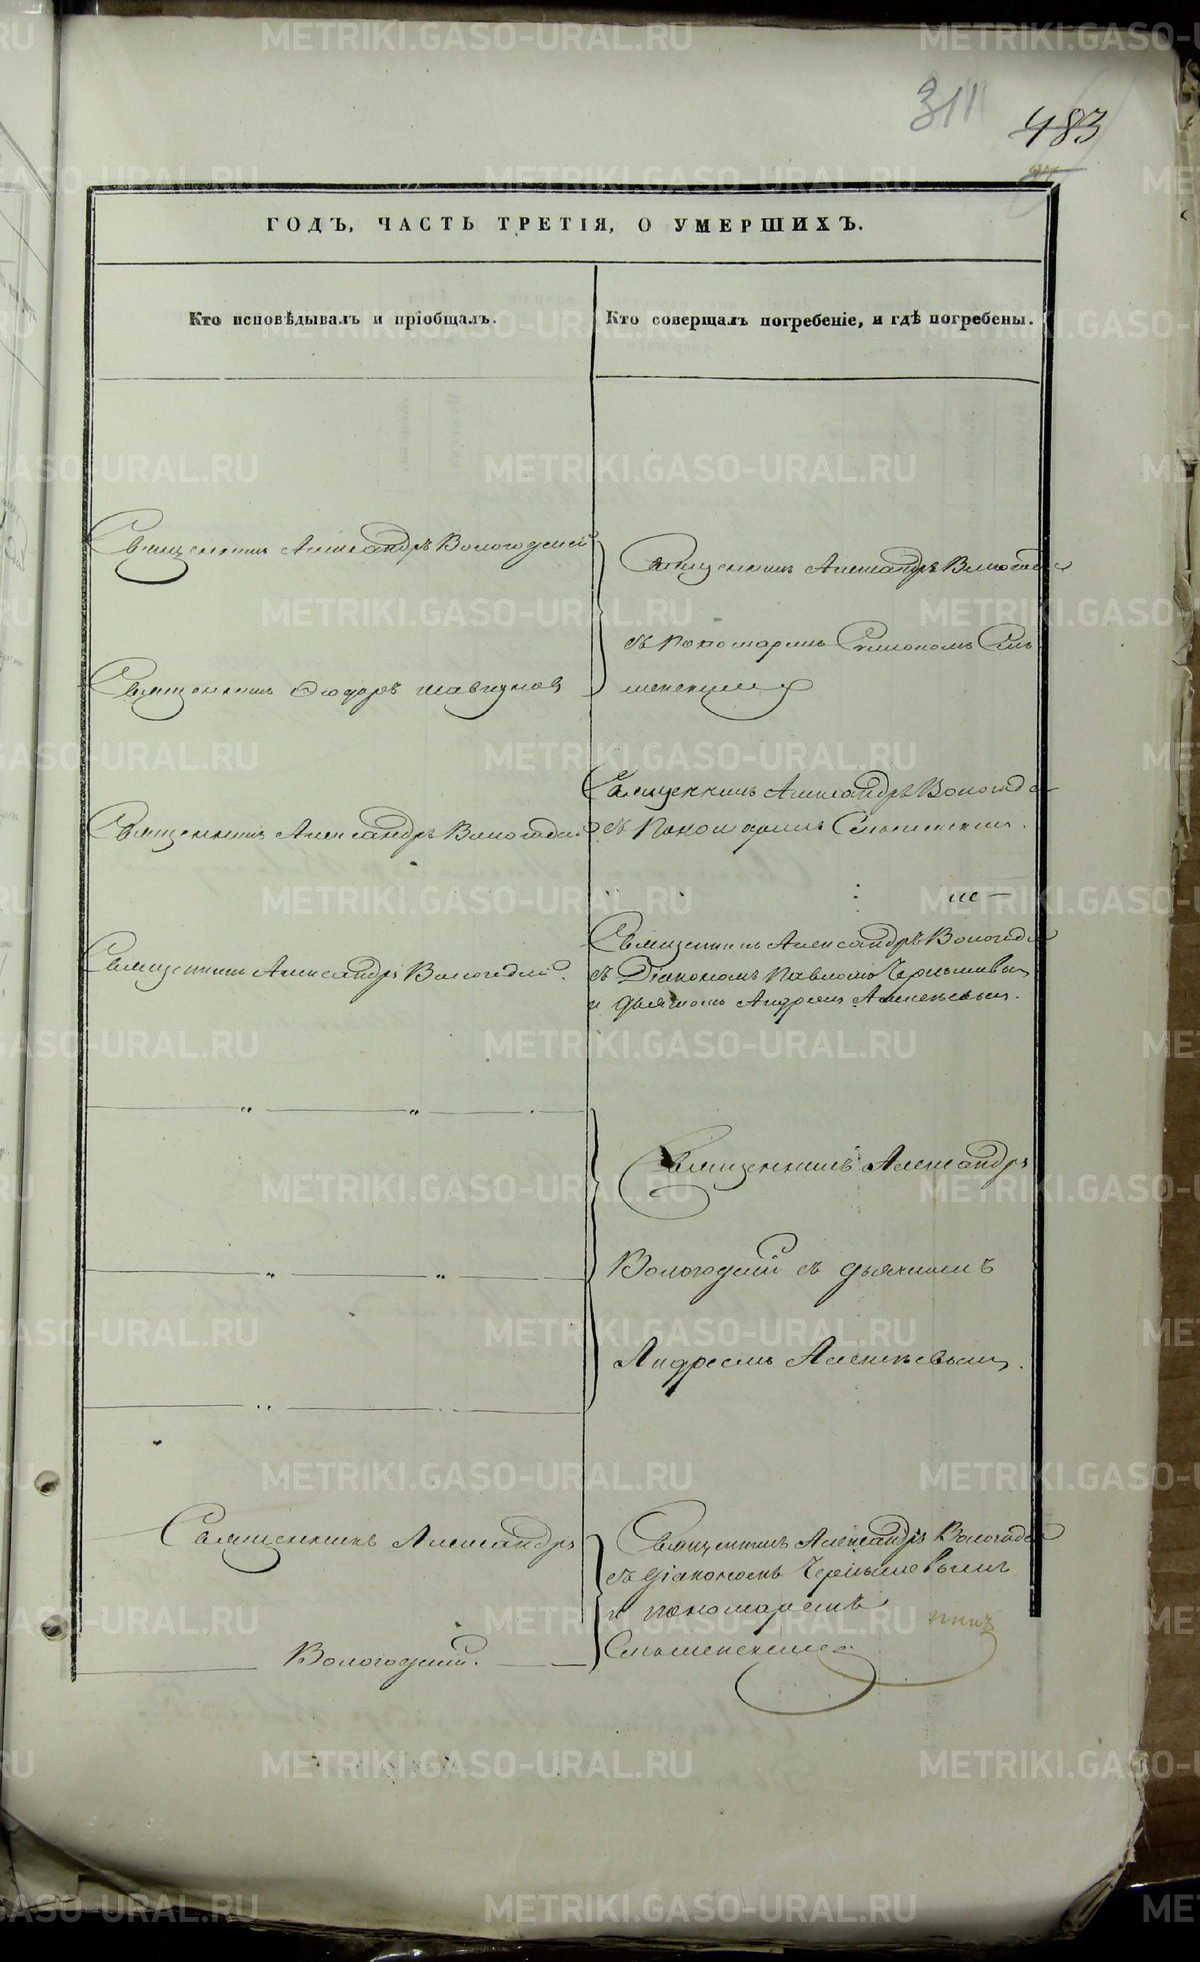 311
483
ГОДЪ, ЧАСТЬ ТРЕТІЯ, О УМЕРШИХЪ.
Кто исповѣдывалъ и пріобщалъ.
Кто соверщалъ погребеніе, и гдѣ погребены.
Священникъ Александръ Вологодскій
Священникъ Александръ Вологодс
съ Пономаремъ Симономъ
Священникъ Ѳеодоръ
Священникъ Александръ Вологодс
Священникъ Александръ Вологодс
съ Пономаремъ
Священникъ Александръ Вологодскій.
Священникъ Александръ Вологодс
съ Діакономъ Павломъ Чернышевы
и дьячкомъ Андреемъ Алексѣевым.
Священникъ Александръ
Вологодскій съ дьячкомъ
Андреемъ Алексѣевымъ.
Священникъ Александръ
Вологодскій.
Священникъ Александръ Вологодс
съ діакономъ Чернышевымъ
и пономаремъ
METRIKI.GASO-URAL.RU